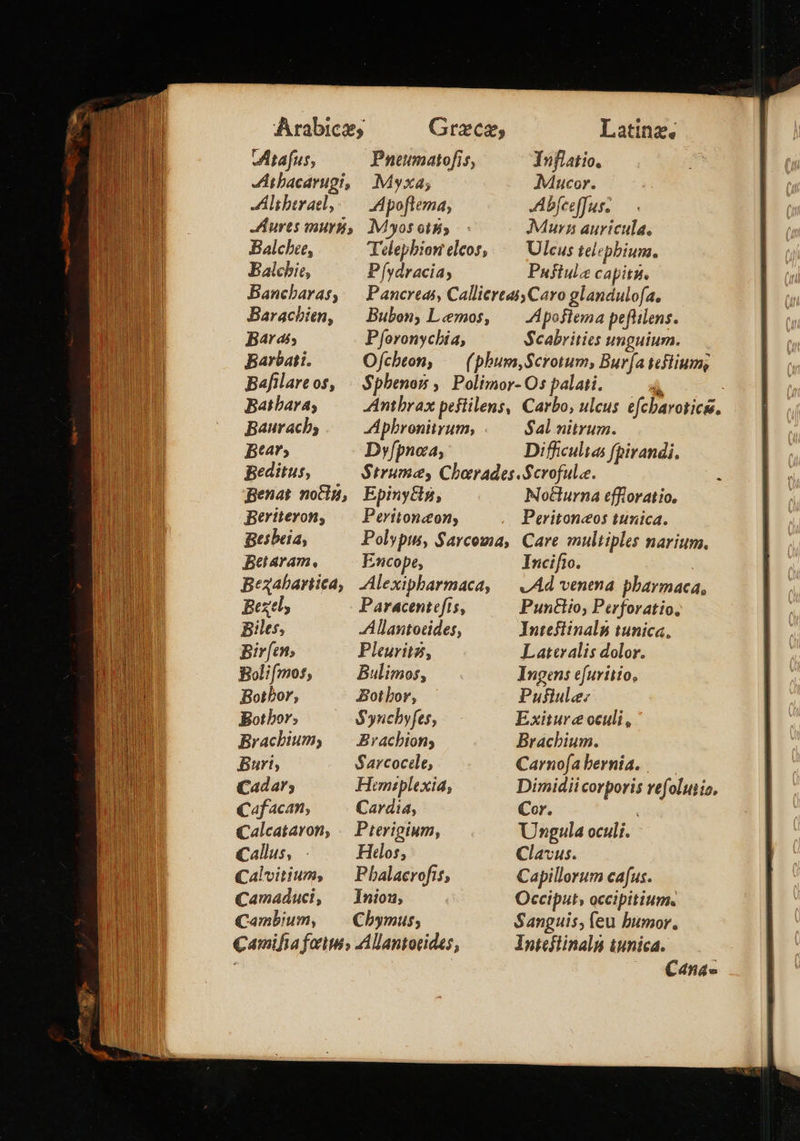 Arabicæ, Græcæ, Latinæ.
Atafus, Pneumatoſis, Inflatio.
Athacarugi, Myxa, Mucor.
Altherael, Apoſtema, Abſceſſus.
Aures muris, Myos otis, Muris auricula.
Balchee, Telephion elcos, Ulcus telephium.
Balchie, Pſydracia, Puſtulæ capitis.
Bancharas, Pancreas, Callicreas, Caro glanduloſa.
Barachien, Bubon, Lœmos, Apoſtema peſtilens.
Baras, Pſoronychia, Scabrities unguium.
Barbati. Oſcheon, (phum, Scrotum, Burſa teſtium,
Baſilare os, Sphenon, Polimor- Os palati.
Bathara, Anthrax peſtilens, Carbo, ulcus eſcharoticū.
Baurach, Aphronitrum, Sal nitrum.
Bear, Dyſpnœa, Difficultas ſpirandi.
Beditus, Strumæ, Chœrades. Scrofulæ.
Benat noctis, Epinyctis, Nocturna effloratio.
Beriteron, Peritonæon, Peritonæos tunica.
Besbeia, Polypus, Sarcoma, Care multiplex narium.
Betaram. Encope, Inciſio.
Bezahartica, Alexipharmaca, Ad venena pharmaca.
Bezel, Paracenteſis, Punctio, Perforatio.
Biles, Allantoeides, Inteſtinalis tunica.
Birſen, Pleuritis, Lateralis dolor.
Boliſmos, Bulimos, Ingens eſuritio.
Bothor, Bothor, Puſtulæ:
Bothor, Synchyſes, Exituræ oculi,
Brachium, Brachion, Brachium.
Buri, Sarcocele, Carnoſa hernia.
Cadar, Hemiplexia, Dimidii corporis reſolutio.
Cafacan, Cardia, Cor.
Calcataron, Pterigium, Ungula oculi.
Callus, Helos, Clavus.
Calvitium, Phalacroſis, Capillorum caſus.
Camaduci, Inion, Occiput, occipitium.
Cambium, Chymus, Sanguis, ſeu humor.
Camiſia fœtus, Allantoeides, Inteſtinalis tunica.
Cana-